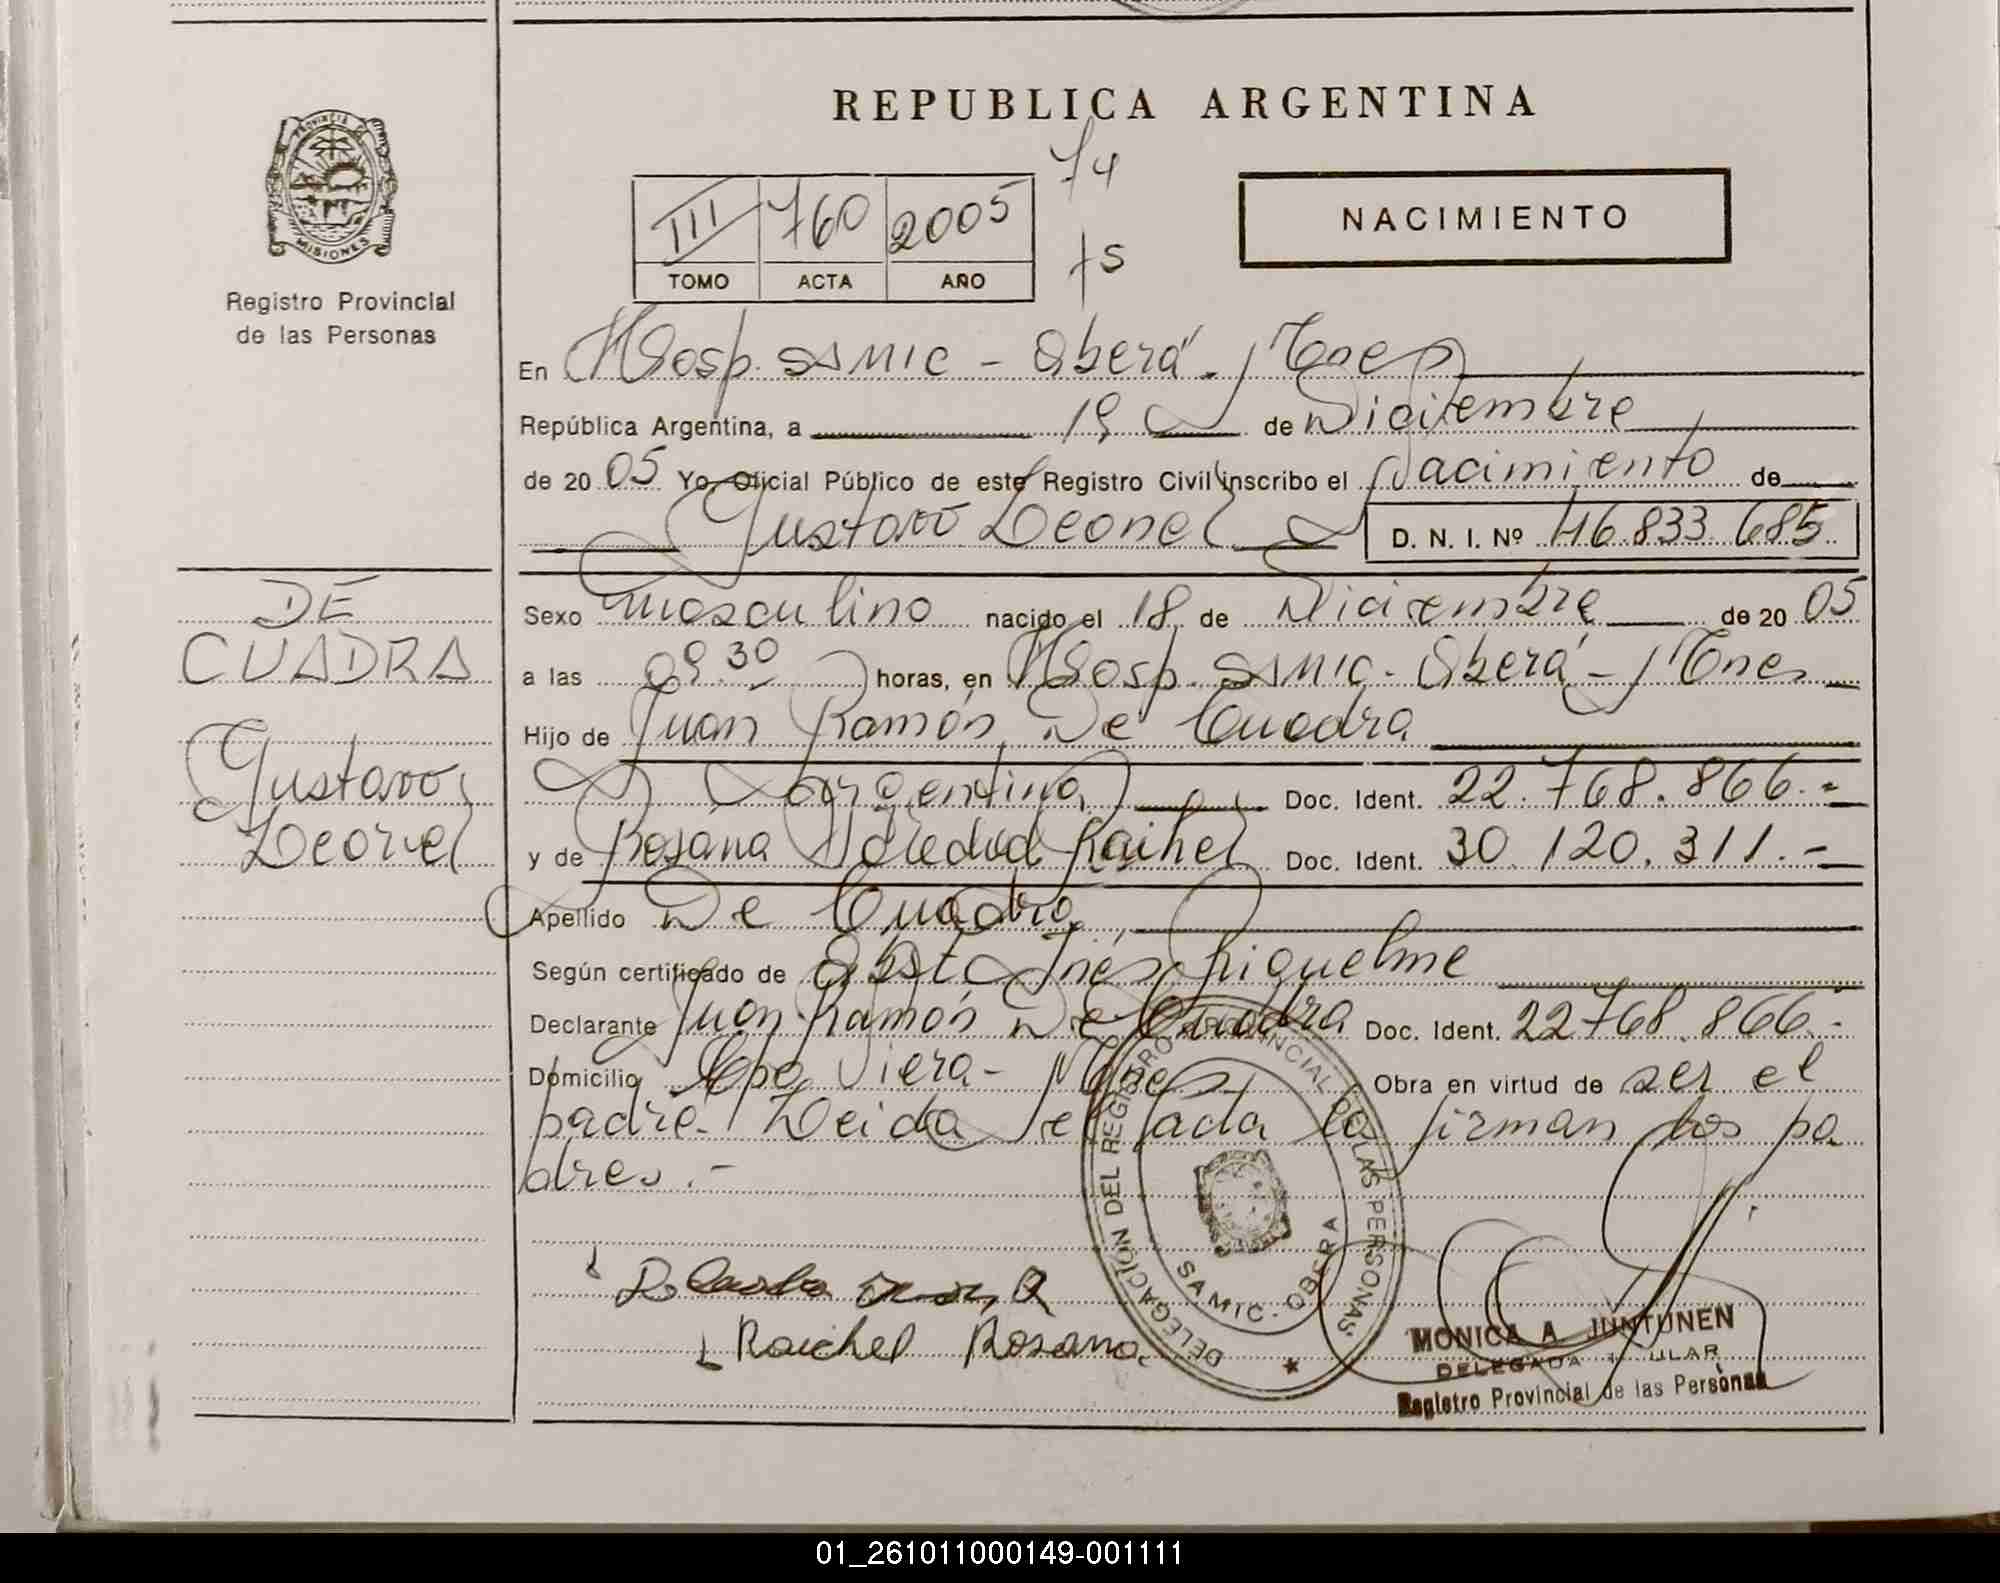 REPUBLICA ARGENTINA
PROVINCIA DE MISIONES
Registro Provincial
de las Personas
III 760 2005
TOMO ACTA AÑO
74
75
NACIMIENTO
En Hosp. SAMIC - Oberá - Mnes
República Argentina, a 19 de Diciembre
de 20 05 Yo, Oficial Público de este Registro Civil inscribo el Nacimiento de
Gustavo Leonel D. N. I. Nº 46.833.685
DE
CUADRA
Gustavo
Leonel
Sexo masculino nacido el 18 de Diciembre de 20 05
a las 09.30 horas, en Hosp. SAMIC - Oberá - Mnes
Hijo de Juan Ramón De Cuadra
Argentina Doc. Ident. 22.768.866.-
y de Rosana Soledad Raihel Doc. Ident. 30.120.311.-
Apellido De Cuadra
Según certificado de Obst. Inés Riquelme
Declarante Juan Ramón De Cuadra Doc. Ident. 22.768.866.-
Domicilio Cpo Viera - Mnes Obra en virtud de ser el
padre. Leida el acta la firman los pa
dres.-
Raichel Rosana
DELEGACIÓN DEL REGISTRO PROVINCIAL DE LAS PERSONAS
SAMIC - OBERA
MONICA A JUNTUNEN
DELEGADA
Registro Provincial de las Personas
01_261011000149-001111